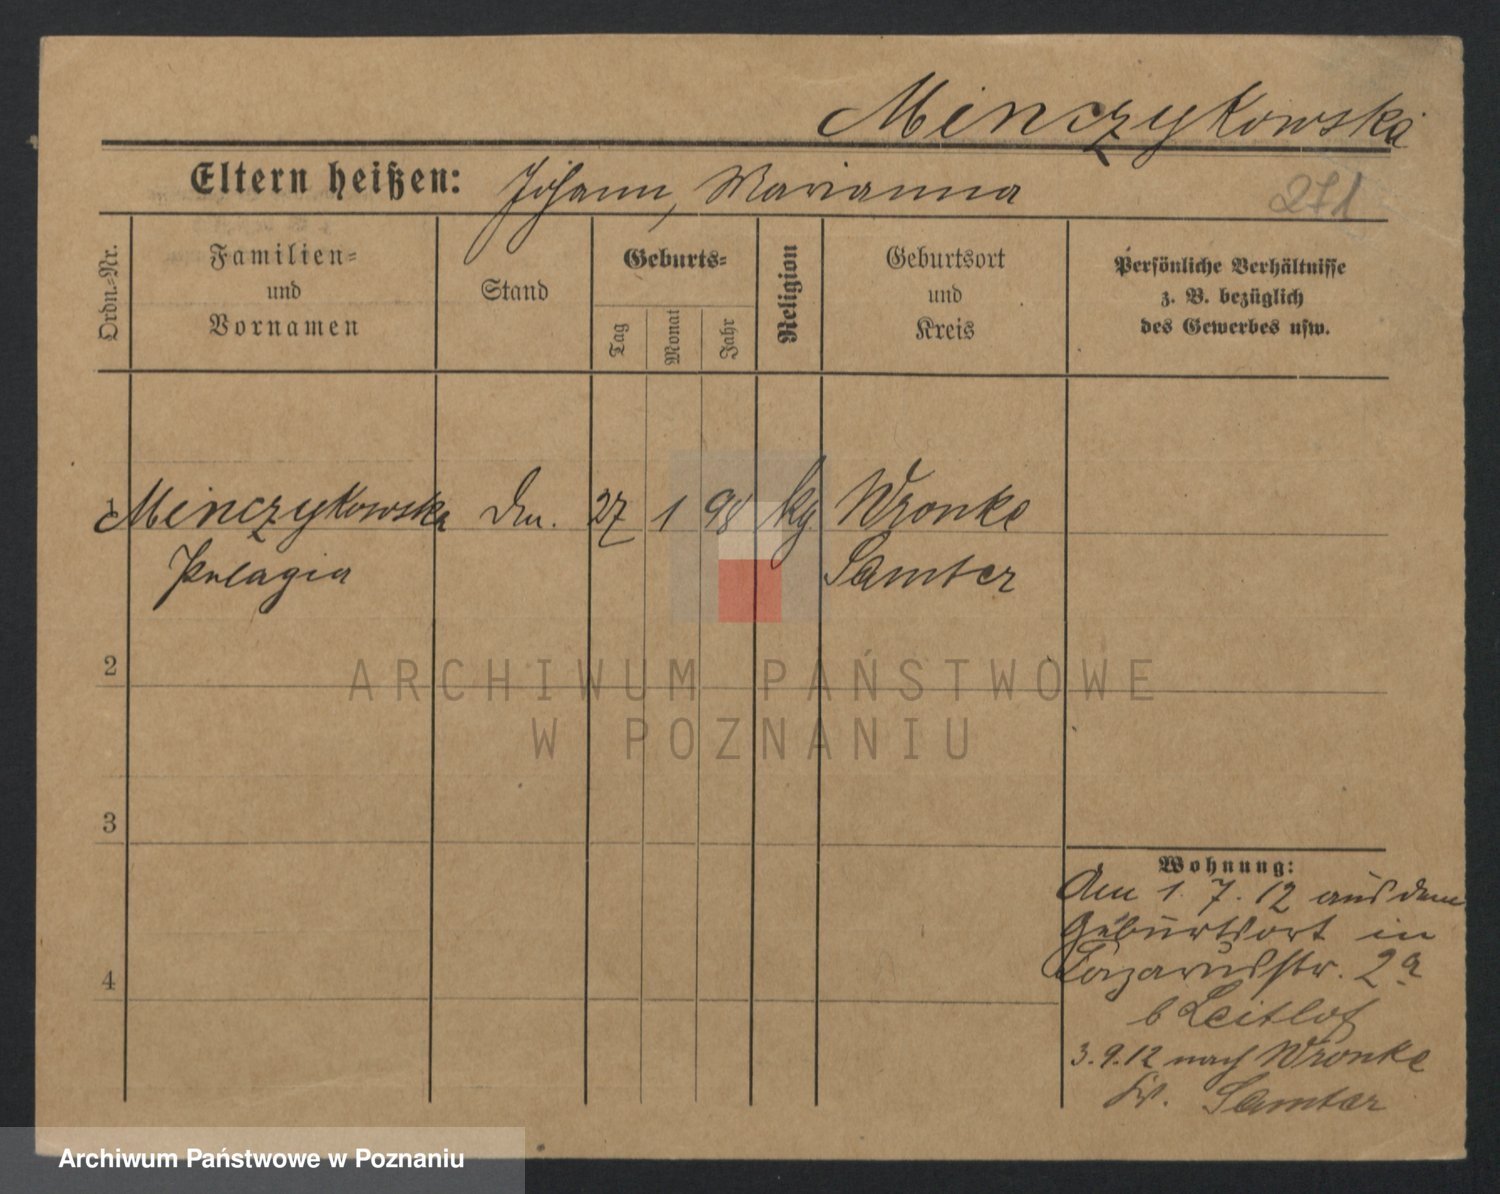 Minczykowska
Eltern heißen: Johann, Marianna
271
Ordn.-Nr.
Familien-
und
Vornamen
Stand
Geburts-
Tag
Monat
Jahr
Religion
Geburtsort
und
Kreis
Persönliche Verhältnisse
z. B. bezüglich
des Gewerbes usw.
1 Minczykowska 27 1 98 kg Wronke
Pelagia Samter
2
3
4
Wohnung:
Am 1. 7. 12 aus dem
Geburtsort in
Lazarusstr. 2a
b Leitlof
3. 9. 12 nach Wronke
Kr. Samter
ARCHIWUM PAŃSTWOWE
W POZNANIU
Archiwum Państwowe w Poznaniu